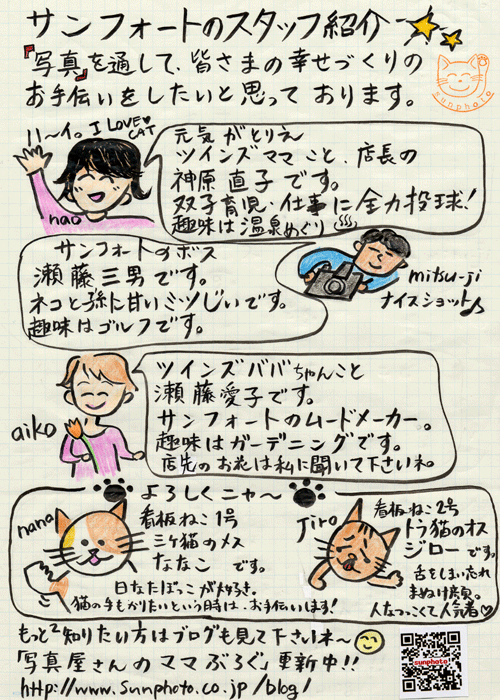 サンフォートのスタッフ紹介
『写真』を通して、皆さまの幸せづくりの
お手伝いをしたいと思って おります。
sunphoto
ハ〜イ。I LOVE♥
CAT
nao
元気がとりえ
ツインズママこと、店長の
神原 直子です。
双子育児・仕事に全力投球!
趣味は温泉めぐり♨
サンフォートのボス
瀬藤三男です。
ネコと孫に甘いミツじいです。
趣味はゴルフです。
mitsu-ji
ナイスショット♪
aiko
ツインズババちゃんこと
瀬藤愛子です。
サンフォートのムードメーカー。
趣味はガーデニングです。
店先のお花は私に聞いて下さいネ。
よろしくニャ〜
nana
看板ねこ1号
三ケ猫のメス
ななこ です。
日なたぼっこが大好き。
猫の手もかりたいという時は、お手伝いします!
Jiro
看板ねこ2号
トラ猫のオス
ジローです。
舌をしまい忘れ
まぬけ顔。
人なつっこくて人気者♡
もっと²知りたい方はブログも見て下さいネ〜
「写真屋さんのママぶろぐ」更新中!!
http://www.sunphoto.co.jp/blog/
sunphoto